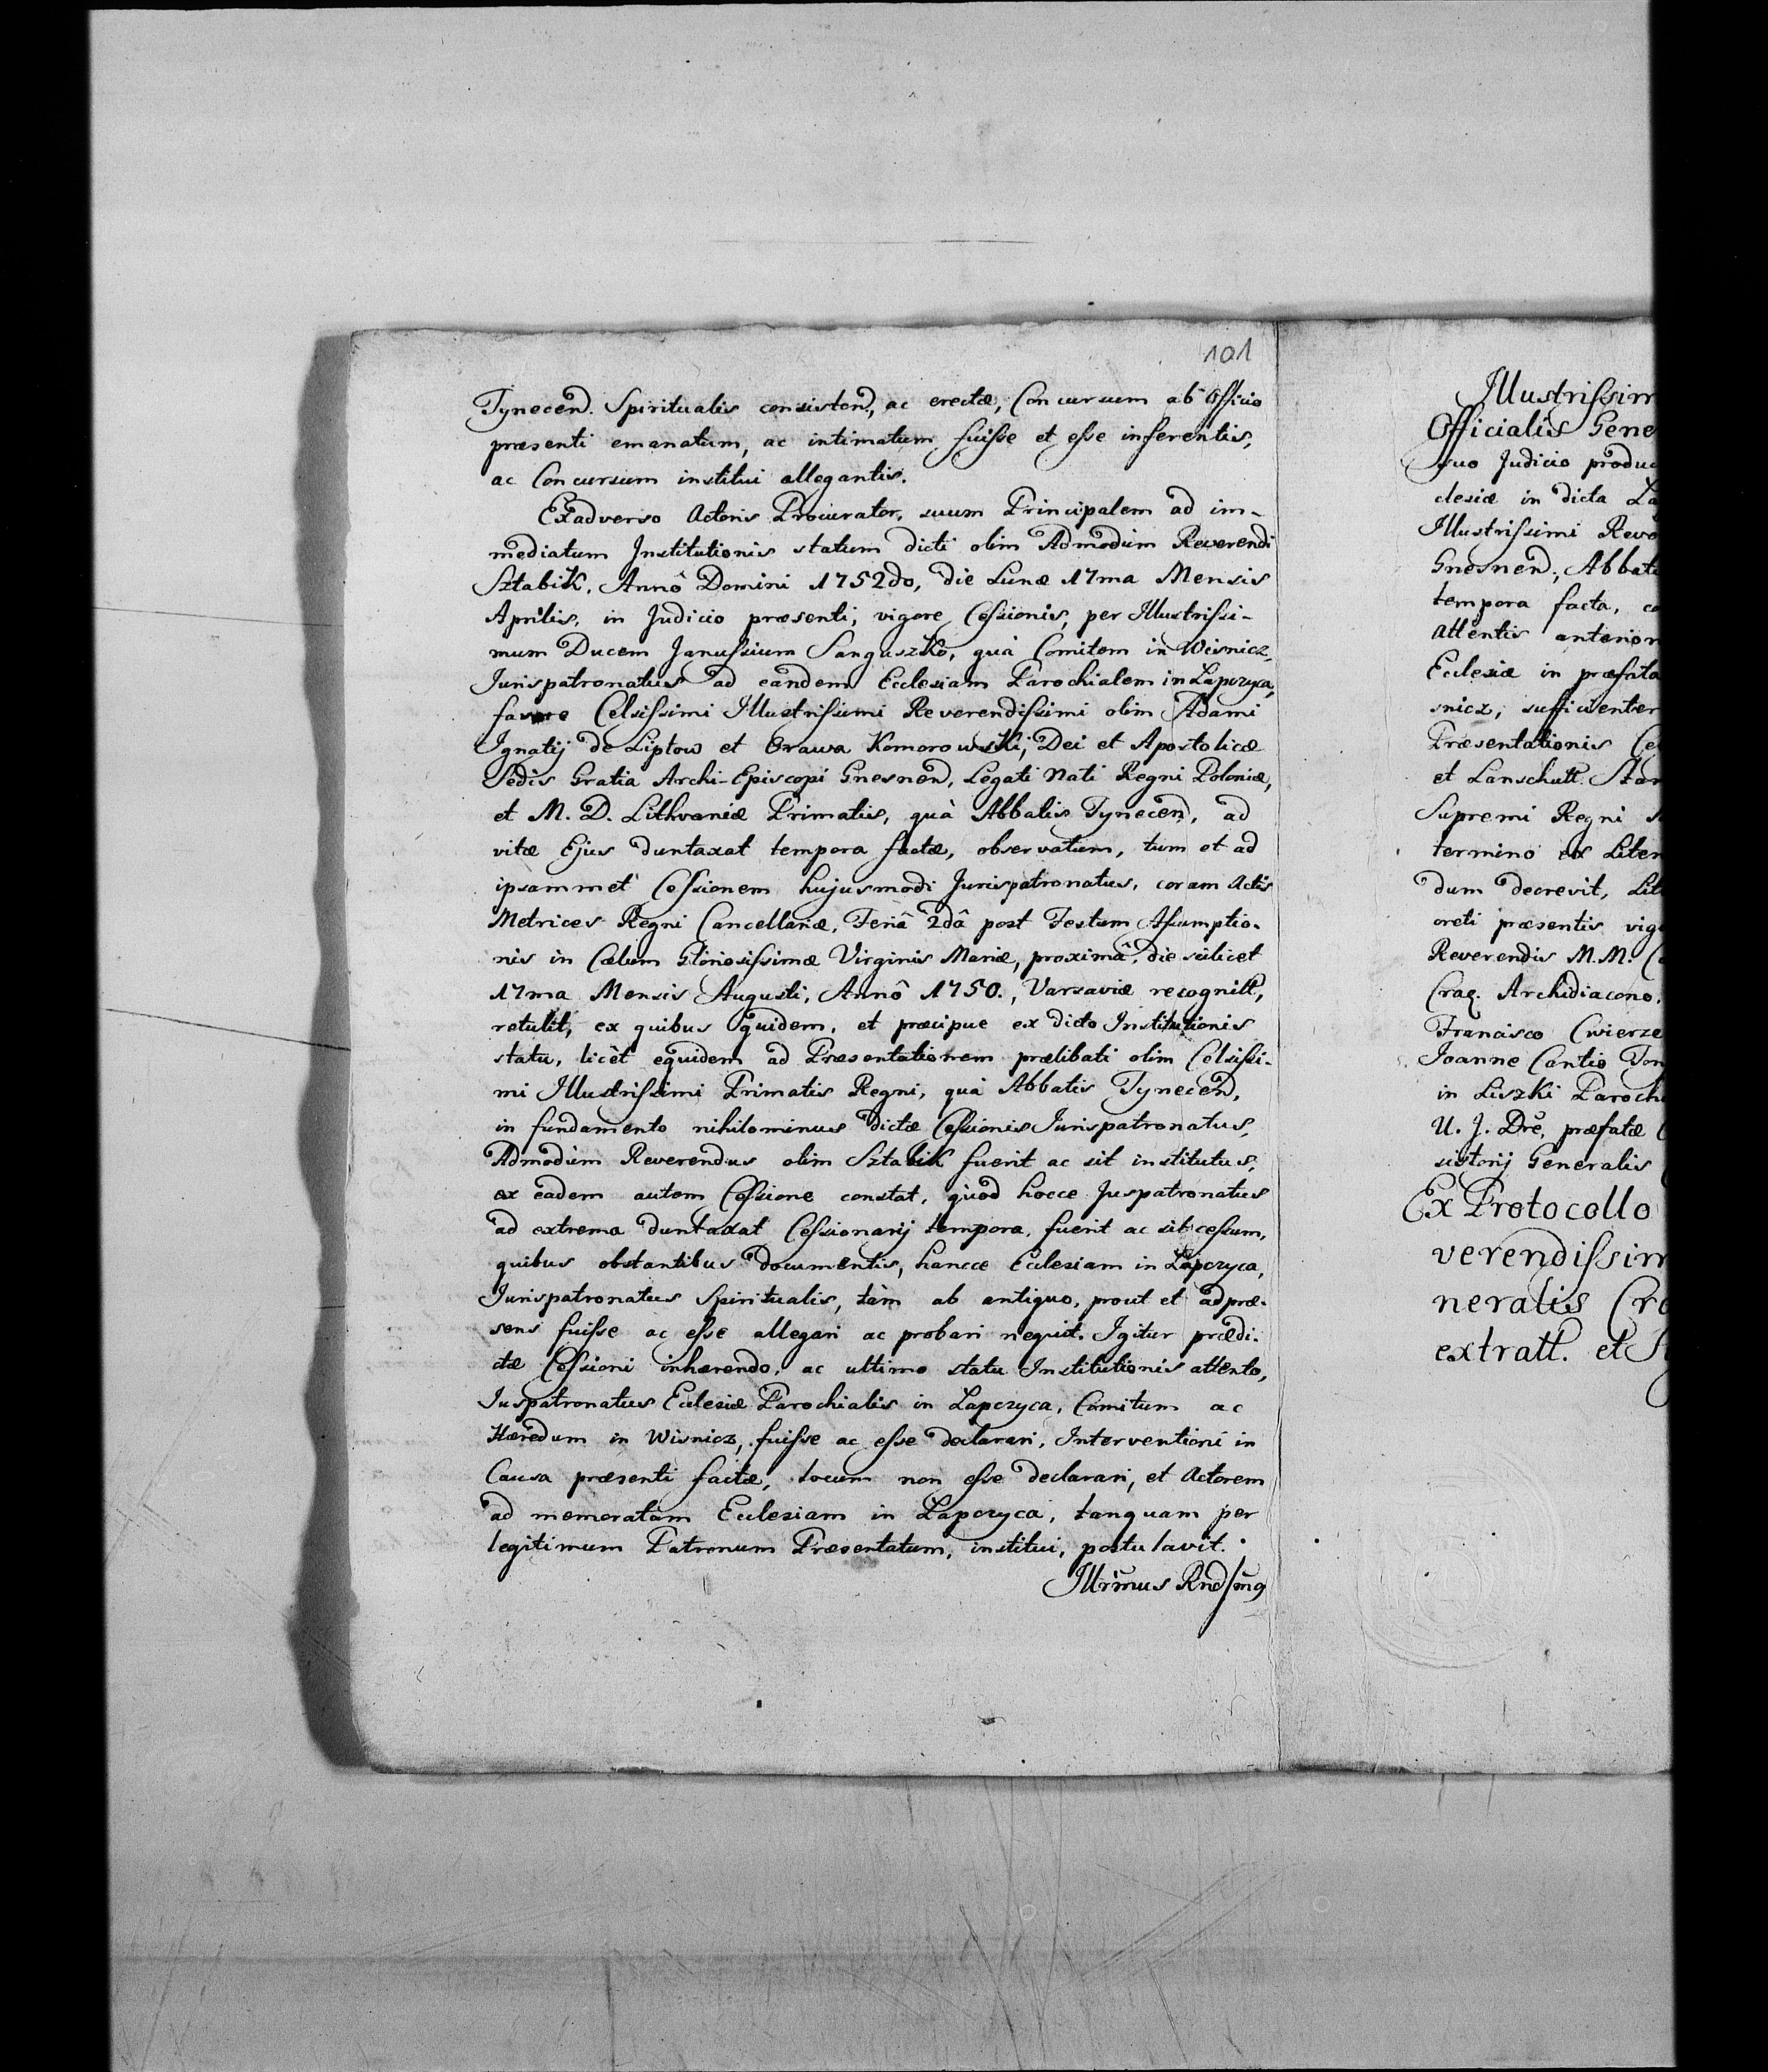 101
Tynecen̄. Spiritualis consisten̄, ac erectæ, Concursum ab Officio
præsenti emanatum, ac intimatum fuisse et esse inferentis,
ac Concursum institui allegantis.
Ex adverso Actoris Procurator, suum Principalem ad im-
mediatum Institutionis statum dicti olim Admodum Reverendi
Sztabik, Annô Domini 1752do, die Lunæ 17ma Mensis
Aprilis, in Judicio præsenti, vigore Cessionis, per Illustrissi-
mum Ducem Janussium Sanguszko, quà Comitem in Wisnicz,
Jurispatronatus ad eandem Ecclesiam Parochialem in Łapczyca,
favore Celsissimi Illustrissimi Reverendissimi olim Adami
Ignatij de Liptow et Orawa Komorowski, Dei et Apostolicæ
Sedis Gratia Archi-Episcopi Gnesnen̄, Legati Nati Regni Poloniæ,
et M. D. Lithvaniæ Primatis, quà Abbatis Tynecen̄, ad
vitæ Ejus duntaxat tempora factæ, observatum, tum et ad
ipsammet Cessionem hujusmodi Jurispatronatus, coram Actis
Metrices Regni Cancellariæ, Feriâ 2dâ post Festum Assumptio-
nis in Cælum Gloriosissimæ Virginis Mariæ, proximâ, die scilicet
17ma Mensis Augusti, Annô 1750., Varsaviæ recognitt,
retulit, ex quibus quidem, et præcipue ex dicto Institutionis
statu, licèt equidem ad Præsentationem prælibati olim Celsissi-
mi Illustrissimi Primatis Regni, quà Abbatis Tynecen̄,
in fundamento nihilominus dictæ Cessionis Jurispatronatus,
Admodùm Reverendus olim Sztabik fuerit ac sit institutus,
ex eadem autem Cessione constat, quòd hocce Juspatronatus
ad extrema duntaxat Cessionarij tempora, fuerit ac sit cessum,
quibus obstantibus documentis, hancce Ecclesiam in Łapczyca,
Jurispatronatus Spiritualis, tàm ab antiquo, prout et ad præ-
sens fuisse ac esse allegari ac probari nequit. Igitur prædi-
ctæ Cessioni inhærendo, ac ultimo statu Institutionis attento,
Juspatronatus Ecclesiæ Parochialis in Łapczyca, Comitum ac
Hæredum in Wisnicz, fuisse ac esse declarari, Interventioni in
Causa præsenti factæ, locum non esse declarari, et Actorem
ad memoratam Ecclesiam in Łapczyca, tanquam per
legitimum Patronum Præsentatum, institui, postulavit.
Illr̄mus Rnd̄sm̄9
Illustrissim
Officialis Gene
suo Judicio produc
clesiæ in dicta Ła
Illustrissimi Reve
Gnesnen̄, Abbat
tempora facta, c
Attentis anterior
Ecclesiæ in præfata
snicz, sufficienter
Præsentationis Ce
et Lanschutt. Star
Supremi Regni
termino ex Liter
dum decrevit, Lit
creti præsentis vig
Reverendis M. M. C
Crac. Archidiacono.
Francisco Cwierze
Joanne Cantio Tom
in Liszki Paroch
U. J. Dr̄e, præfatæ
sistorij Generalis
Ex Protocollo
verendissim
neralis Cra
extratt. et S